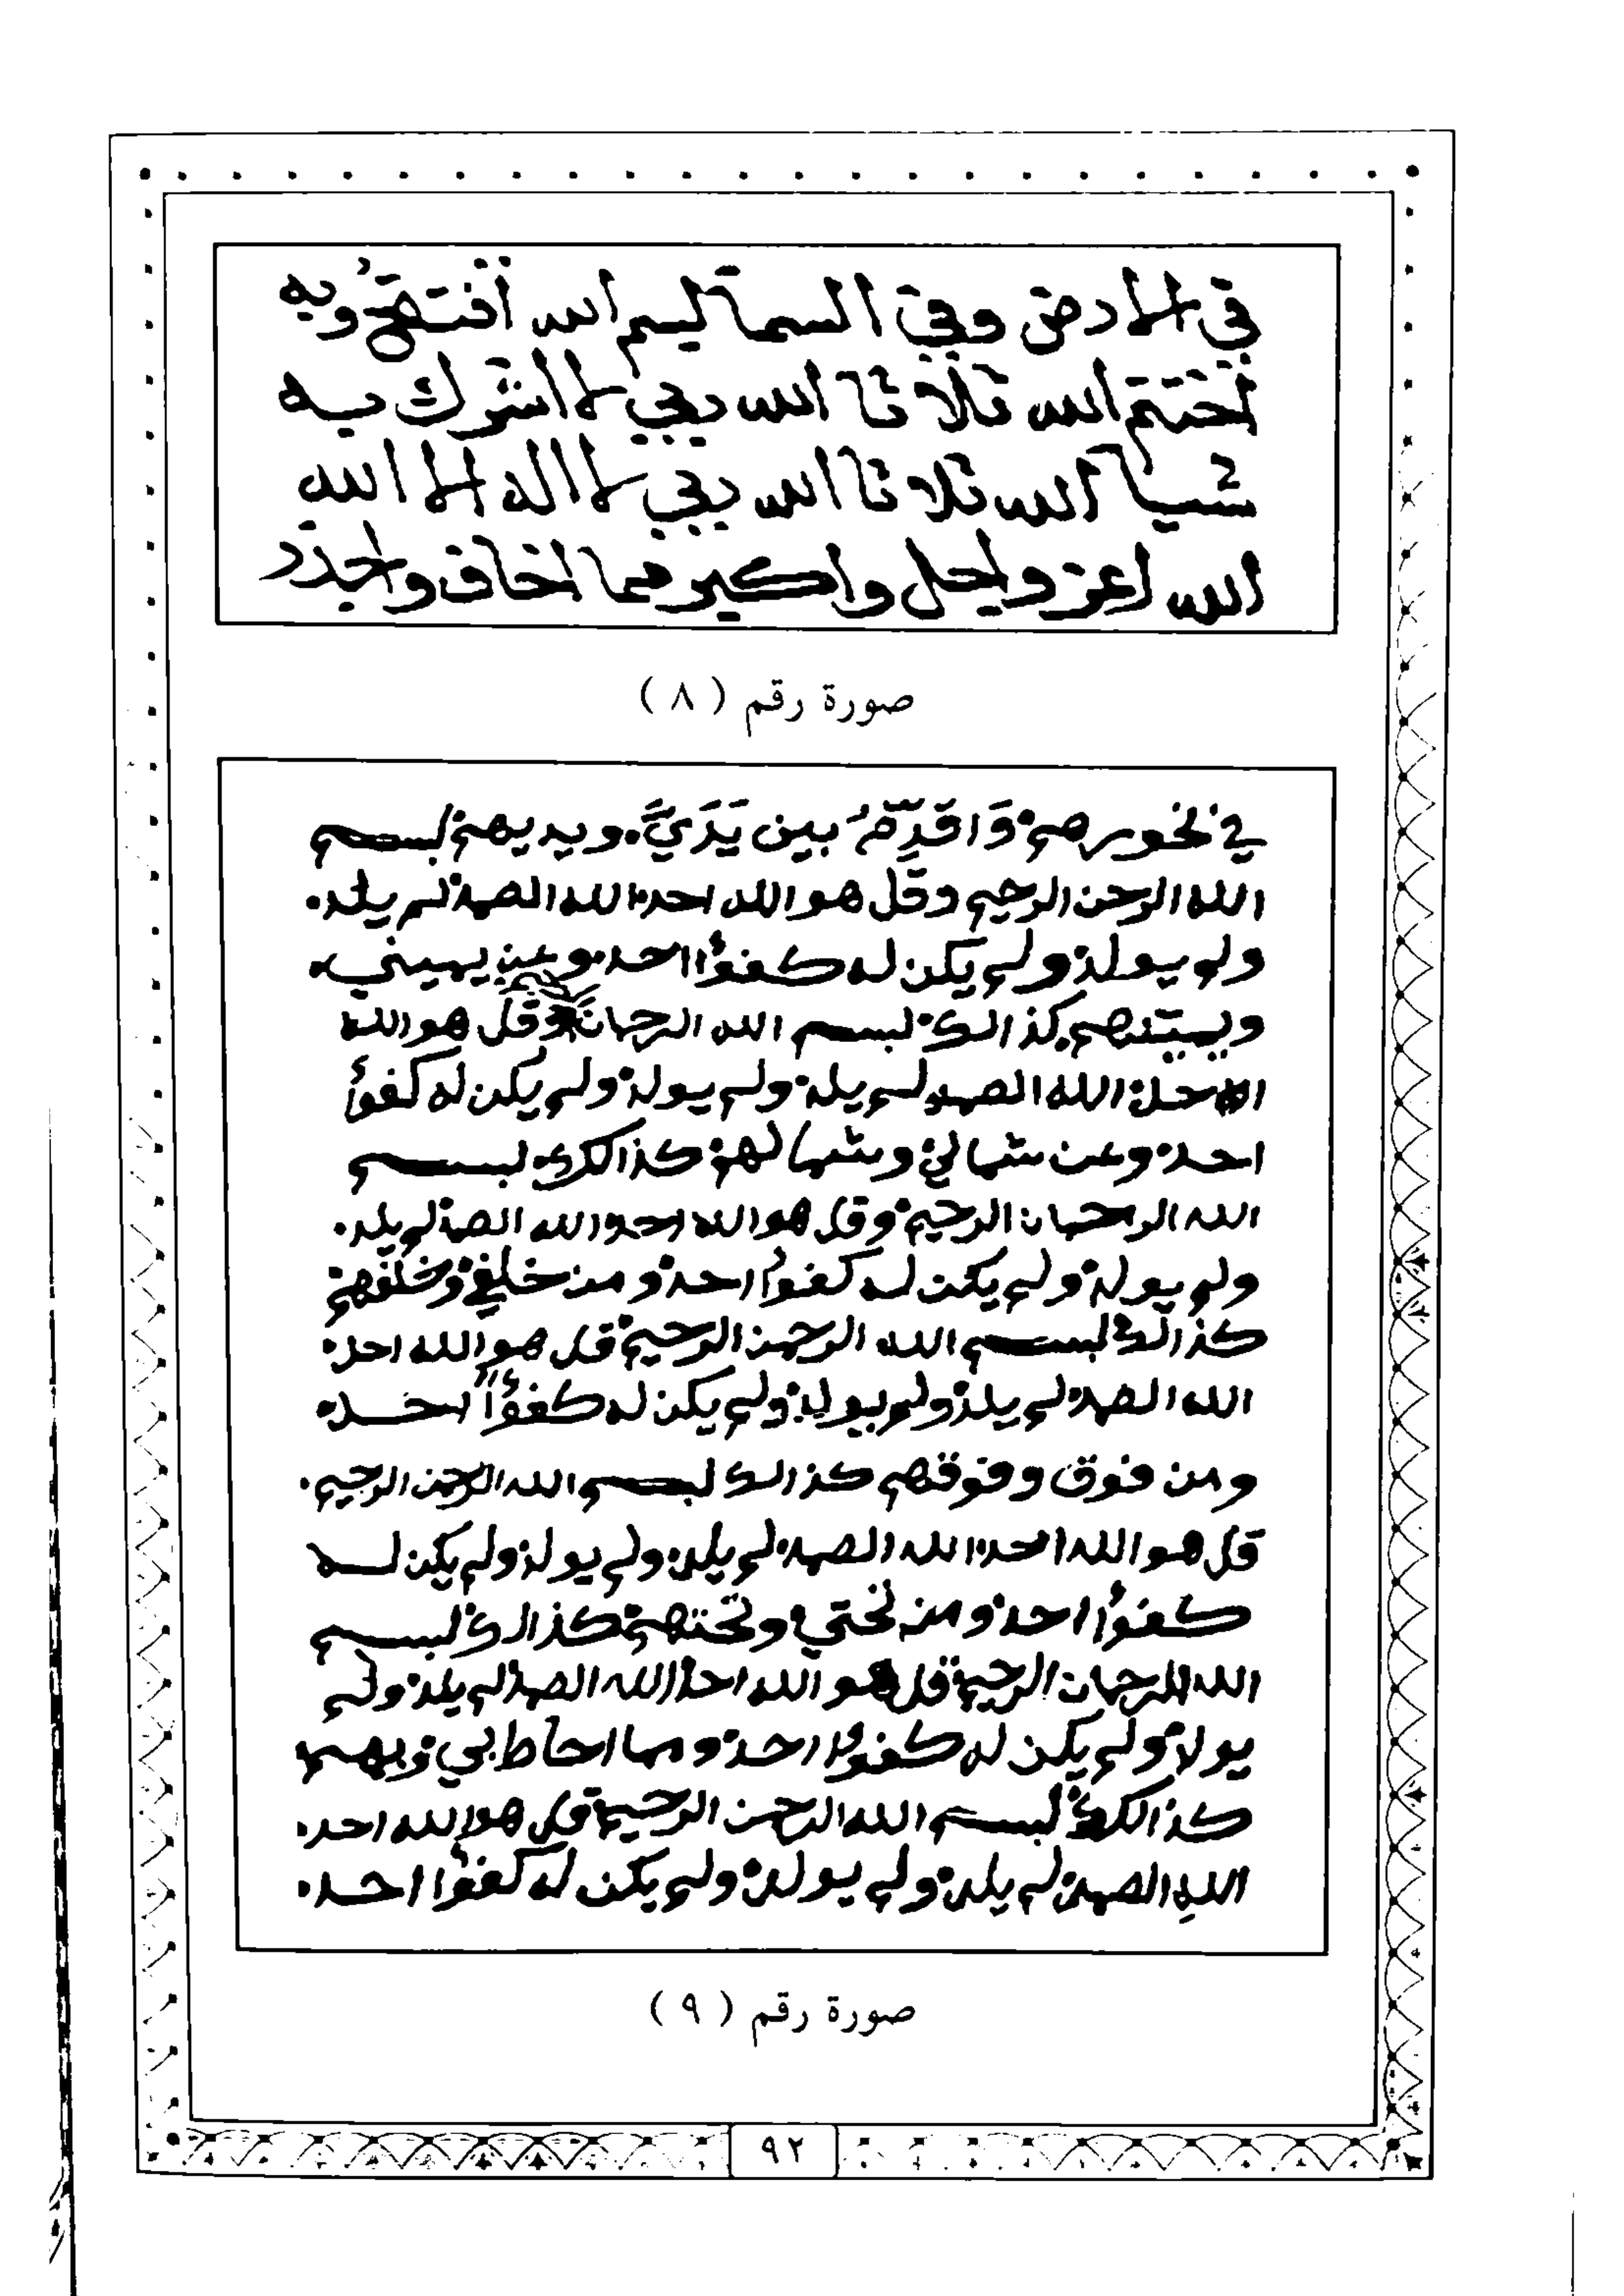 في الارض وفي السما بسم الله افتتح وبه
اختتم الله ثلاثا الله ربي لا اشرك به
شيا الله ثلاثا الله ربي لا اله الا الله
الله اعز واجل واكبر مما اخاف واحذر
صورة رقم ( ٨ )
في نحورهم وَاقَدِّمُ بين يَدَيَّ وبديهم بسم
الله الرحمن الرحيم وقل هو الله احد الله الصمد لم يلد
ولم يولد ولم يكن له كفؤا احد وعن يميني
ويمينهم كذالك بسم الله الرحمان وقل هو الله
احد الله الصمد لم يلد ولم يولد ولم يكن له كفؤ
احد وعن شمالي وشمالهم كذالك بسم
الله الرحمان الرحيم وقل هو الله احد الله الصمد لم يلد
ولم يولد ولم يكن له كفؤا احد ومن خلفي وخلفهم
كذالك بسم الله الرحمن الرحيم قل هو الله احد
الله الصمد لم يلد ولم يولد ولم يكن له كفؤاً احد
ومن فوق وفوقهم كذالك بسم الله الرحمن الرحيم
قل هو الله احد الله الصمد لم يلد ولم يولد ولم يكن له
كفؤا احد ومن تحتي وتحتهم كذالك بسم
الله الرحمان الرحيم قل هو الله احد الله الصمد لم يلد ولم
يولد ولم يكن له كفؤا احد ومما احاط بي وبهم
كذالك بسم الله الرحمن الرحيم قل هو الله احد
الله الصمد لم يلد ولم يولد ولم يكن له كفؤا احد
صورة رقم ( ٩ )
٩٢